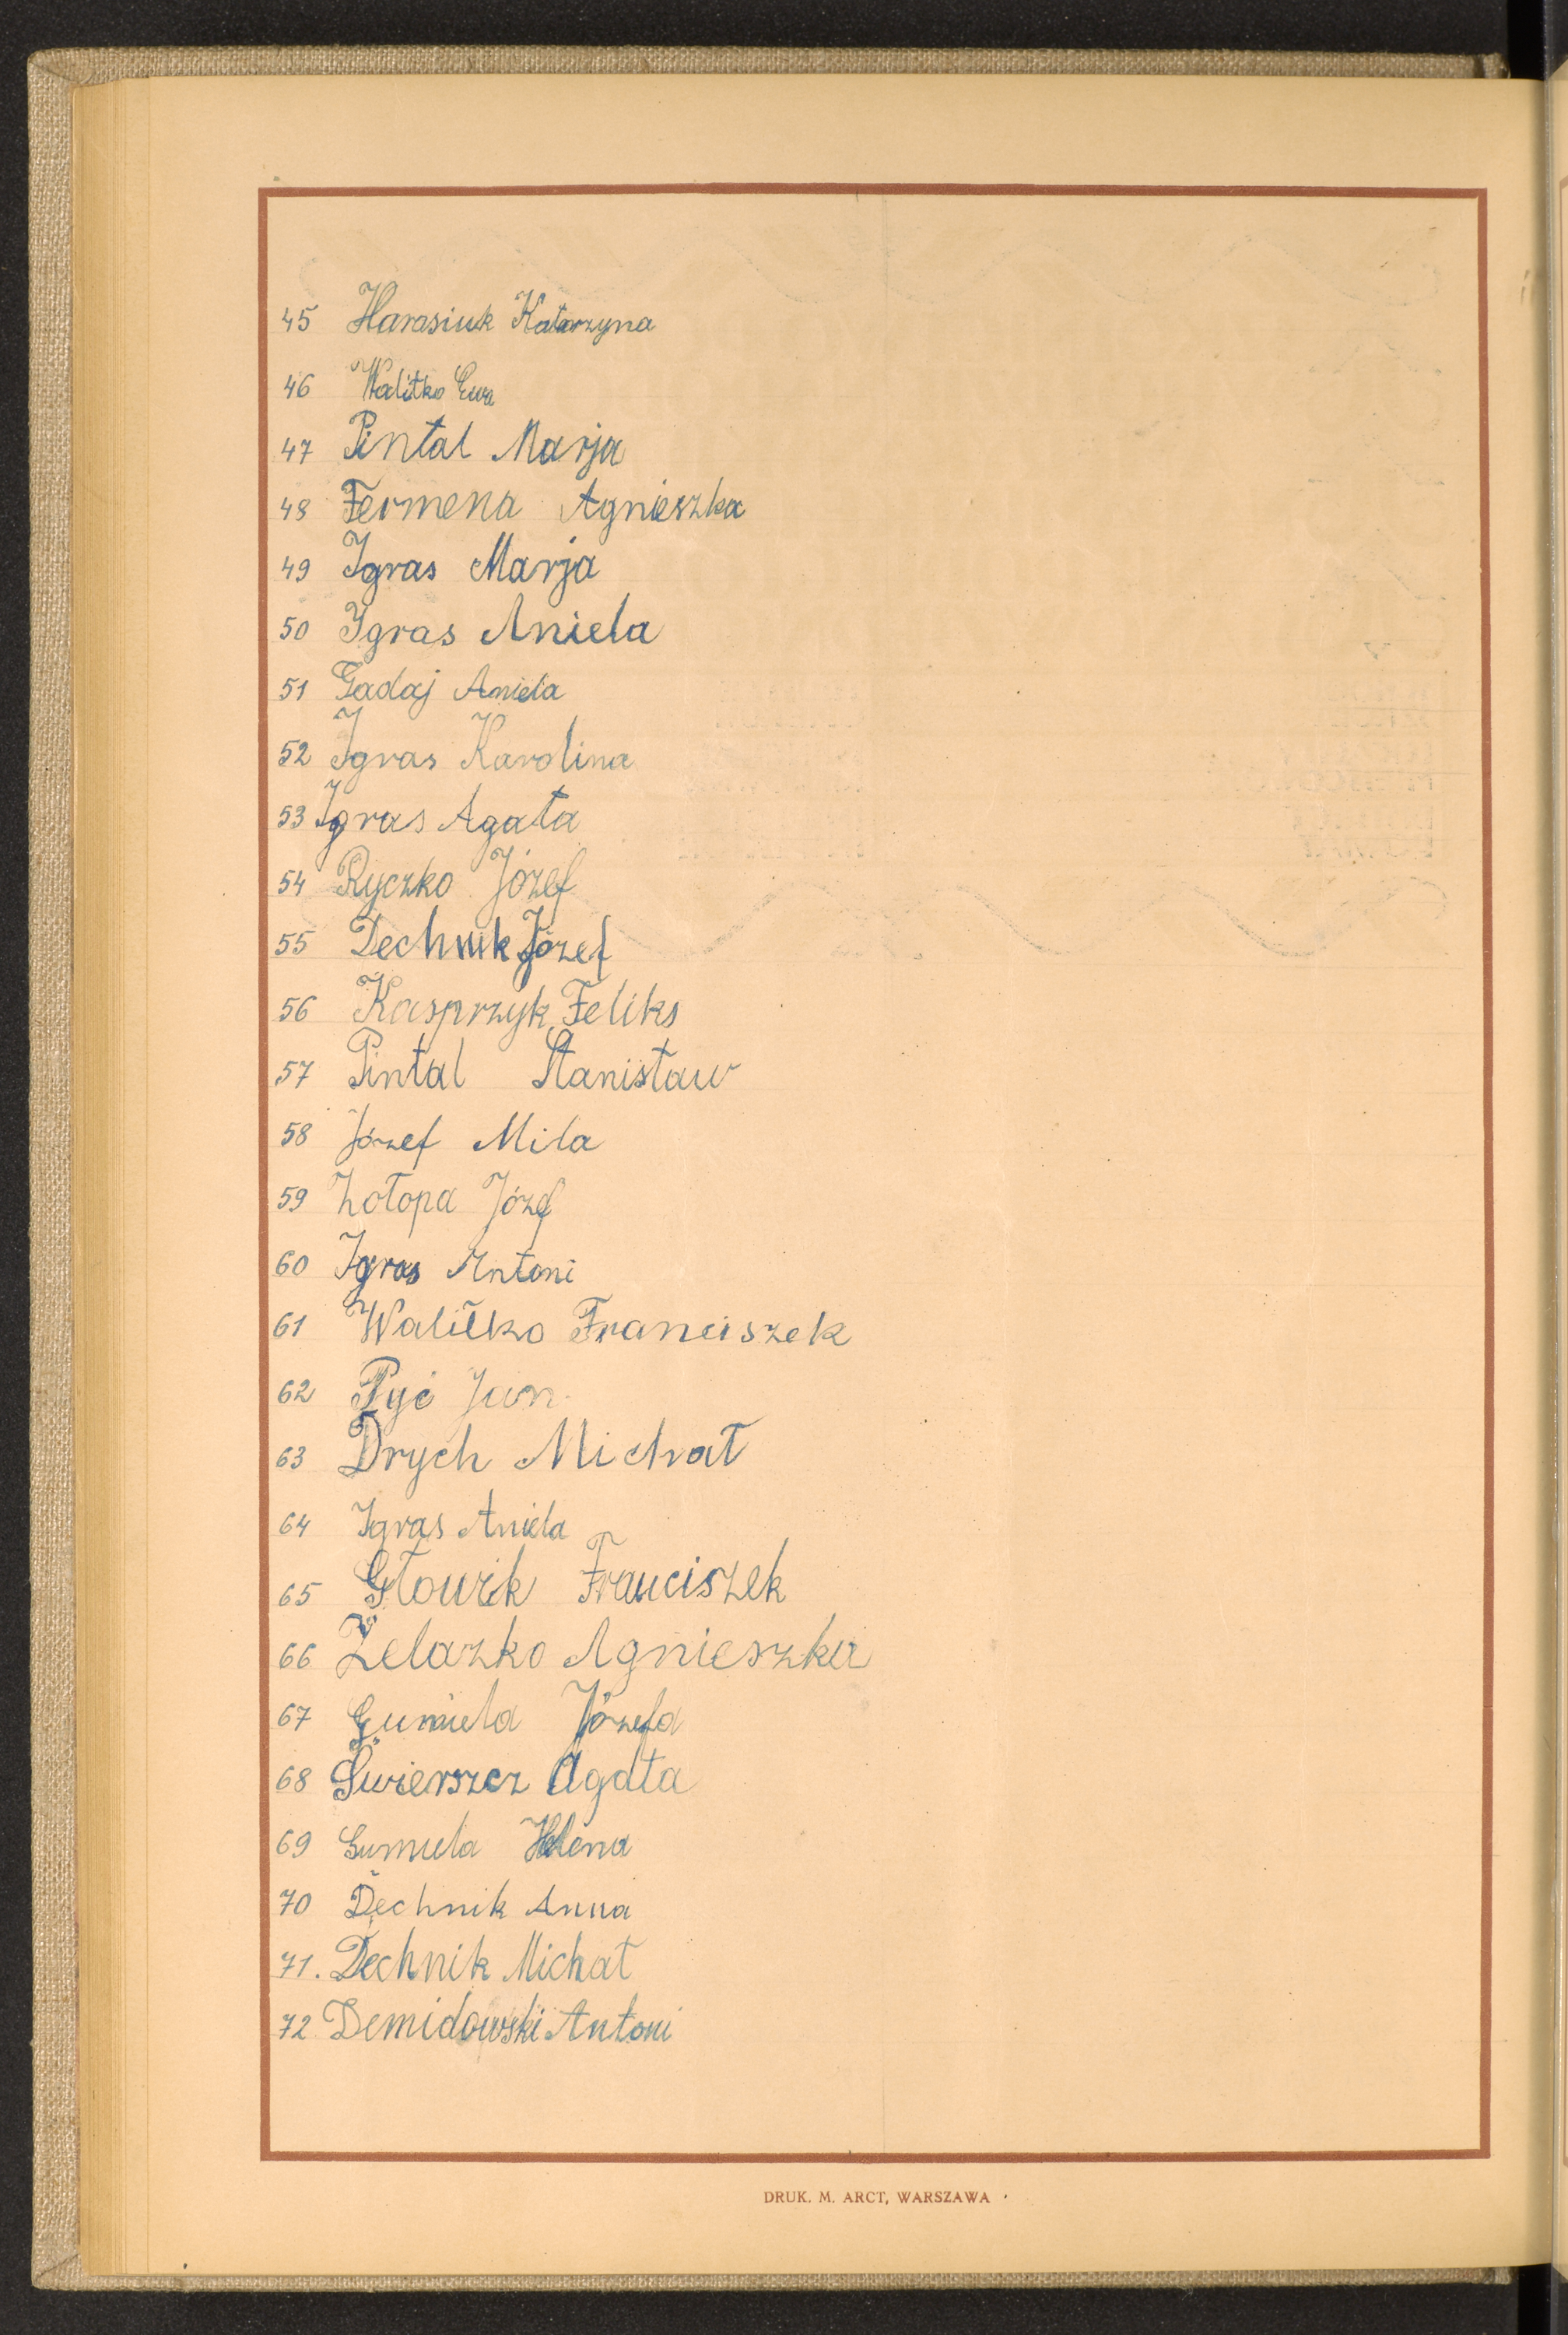 45 Harasiuk Katarzyna
46 Walitko Ewa
47 Pintal Marja
48 Fermena Agnieszka
49 Igras Marja
50 Igras Aniela
51 Gadaj Aniela
52 Igras Karolina
53 Igras Agata
54 Ryczko Józef
55 Dechnik Józef
56 Kasprzyk Feliks
57 Pintal Stanisław
58 Józef Mila
59 Zołopa Józef
60 Igras Antoni
61 Walitko Franciszek
62 Pyć Jan
63 Drych Michał
64 Igras Aniela
65 Franciszek
66 Żelazko Agnieszka
67 Gumiela Józefa
68 Świerszcz Agata
69 Gumiela Helena
70 Dechnik Anna
71. Dechnik Michał
72 Demidowski Antoni
DRUK. M. ARCT, WARSZAWA